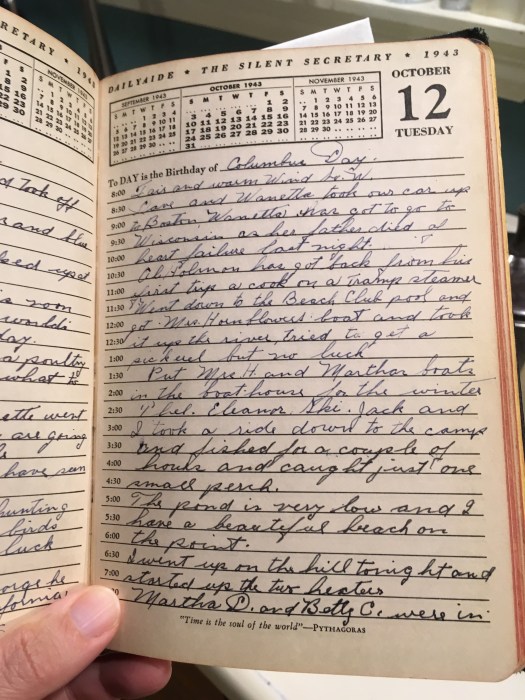 RETARY ★ 1943
NOVEMBER 1943
S M T W T F S
d took off
and blue
ked up at
room
world
day.
a poultry
what to
ette went
are going
have seen
hunting
birds
luck
George he
forma
DAILYAIDE ★ THE SILENT SECRETARY ★ 1943
SEPTEMBER 1943
S M T W T F S
1 2 3 4
5 6 7 8 9 10 11
12 13 14 15 16 17 18
19 20 21 22 23 24 25
26 27 28 29 30
OCTOBER 1943
S M T W T F S
1 2
3 4 5 6 7 8 9
10 11 12 13 14 15 16
17 18 19 20 21 22 23
24 25 26 27 28 29 30
31
NOVEMBER 1943
S M T W T F S
1 2 3 4 5 6
7 8 9 10 11 12 13
14 15 16 17 18 19 20
21 22 23 24 25 26 27
28 29 30
OCTOBER
12
TUESDAY
To DAY is the Birthday of Columbus Day.
8:00 Fair and warm Wind be W
8:30 Cave and Wanetta took our car up
9:00 to Boston Wanetta has got to go to
9:30 Wisconsin as her father died of
10:00 heart failure last night.
10:30 Al. Solmon has got back from his
11:00 first trip a cook on a Tramp steamer
11:30 Went down to the Beach Club pool and
12:00 got Mrs. Hornblowers boat and took
12:30 it up the river, tried to get a
1:00 pickerel but no luck
1:30 Put Mrs. H. and Marthas boats
2:00 in the boathouse for the winter
2:30 Phil. Eleanor Ski. Jack and
3:00 I took a ride down to the camp
3:30 and fished for a couple of
4:00 hours and caught just one
4:30 small perch.
5:00 The pond is very low and I
5:30 have a beautiful beach on
6:00 the point.
6:30 I went up on the hill tonight and
7:00 started up the two heaters
Martha D. and Betty C. were in
"Time is the soul of the world"—PYTHAGORAS